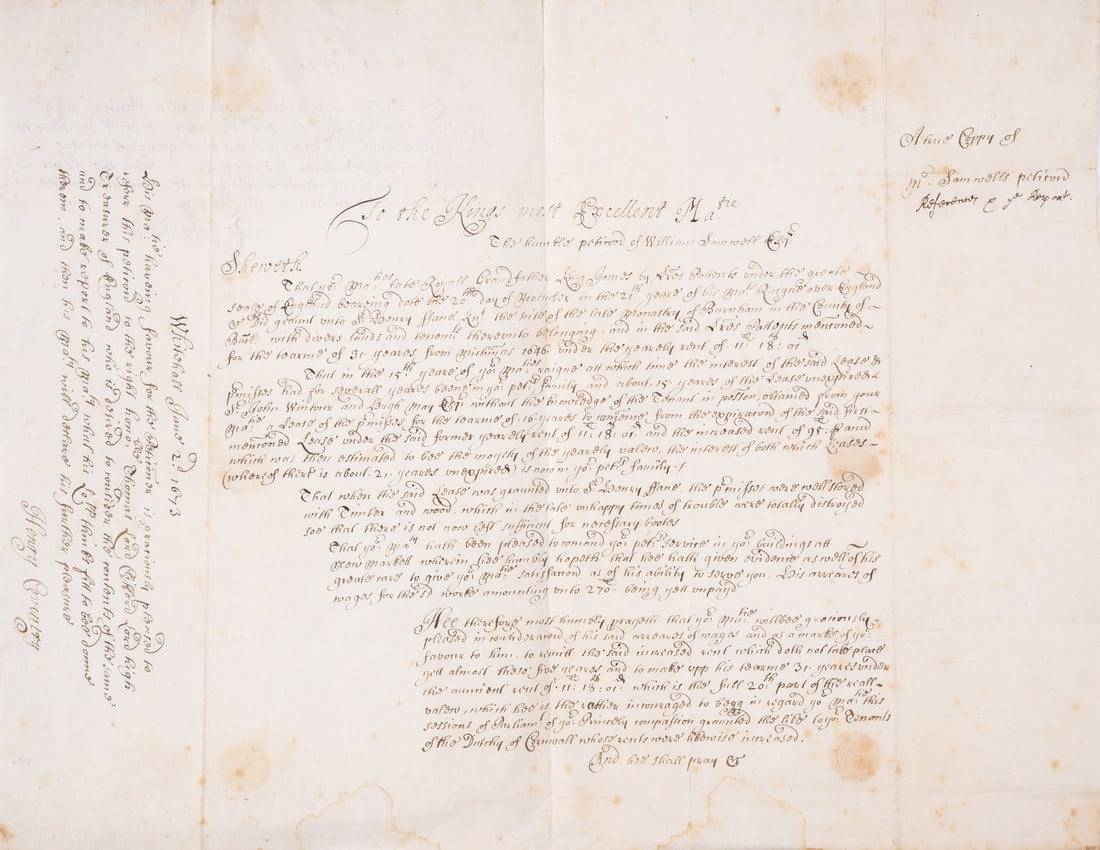 A true Coppy of
Mr. Samwells peticon
References & ye Report.
To the Kings most Excellent Matie
The humble peticon of William Samwell Esqr.
Sheweth
That yor. Maties late Royall Grandfather King James by Lres Pattents under the greate
seale of England beareing date the 20th day of November in the 21th yeare of his Mats Raigne over England
&c did graunt unto Sr. Henry ffane Knt. the site of the late Monastry of Burnham in the County of
Buck. with divers lands and tenemts thereunto belonging, and in the said Lres Pattents mentoned
for the tearme of 31 yeares from Michmas 1646 under the yearely rent of 11l: 18s: 01d
That in the 15th yeare of yor Maties raigne att which time the interest of the said Lease &
pmisses had for severall yeares beene in yor petrs family and about 15 yeares of the Lease unexpired
Sr. John Wintour and Hugh May Esqr without the knowledge of the Tenant in possion, obtained from your
Matie a Lease of the pmisses for the tearme of 16 yeares to comence from the expiracon of the said first
mentoned Lease under the said former yearely rent of 11l: 18s: 01d and the increased rent of 95l: and
which was then estimated to bee the moyety of the yearely valew, the interest of both which Leases
(whereof there is about 21 yeares unexpired) is now in yor petrs family./
That when the said Lease was graunted unto Sr. Henry ffane, the pmisses were well stored
with Timber and wood, which in the late unhappy times of trouble were totally distroyed
soe that there is not now left sufficient for necessary bootes
That yor Maty hath been pleased to comand yor petrs service in yor buildings att
New Markett wherein hee humbly hopeth that hee hath given evidence as well of his
greate care to give yor Matie satisfacon as of his ability to serve you, His arreares of
wages for the sd works amounting unto 270l: being yett unpaid
Hee therefore most humbly prayeth that yor Matie willbee graciously
pleased in consideracon of his said arreares of wages and as a marke of yor
favour to him, to remitt the said increased rent which doth not take place
yett almost these five yeares and to make upp his tearme 31 yeares under
the auncient rent of 11l: 18s: 01d which is the full 20th part of the reall
valew, which hee is the rather incouraged to begg in regard yor Matie this
sessions of Parliamt of yor Princely compassion graunted the like to yor Tenants
of the Dutchy of Cornwall whose rents were likewise increased.
And hee shall pray &c
Whitehall June 2d. 1673
His Matie haveing favour for the Petitioner is graciously pleased to
referr this peticon to the right honoble Thomas Lord Clifford Lord high
Treasurer of England who is desired to consider the contents of the same
and to make report to his Maty what his Lopp thinks fitt to bee done
therein, and then his Maty will declare his further pleasure
Henry Coventry